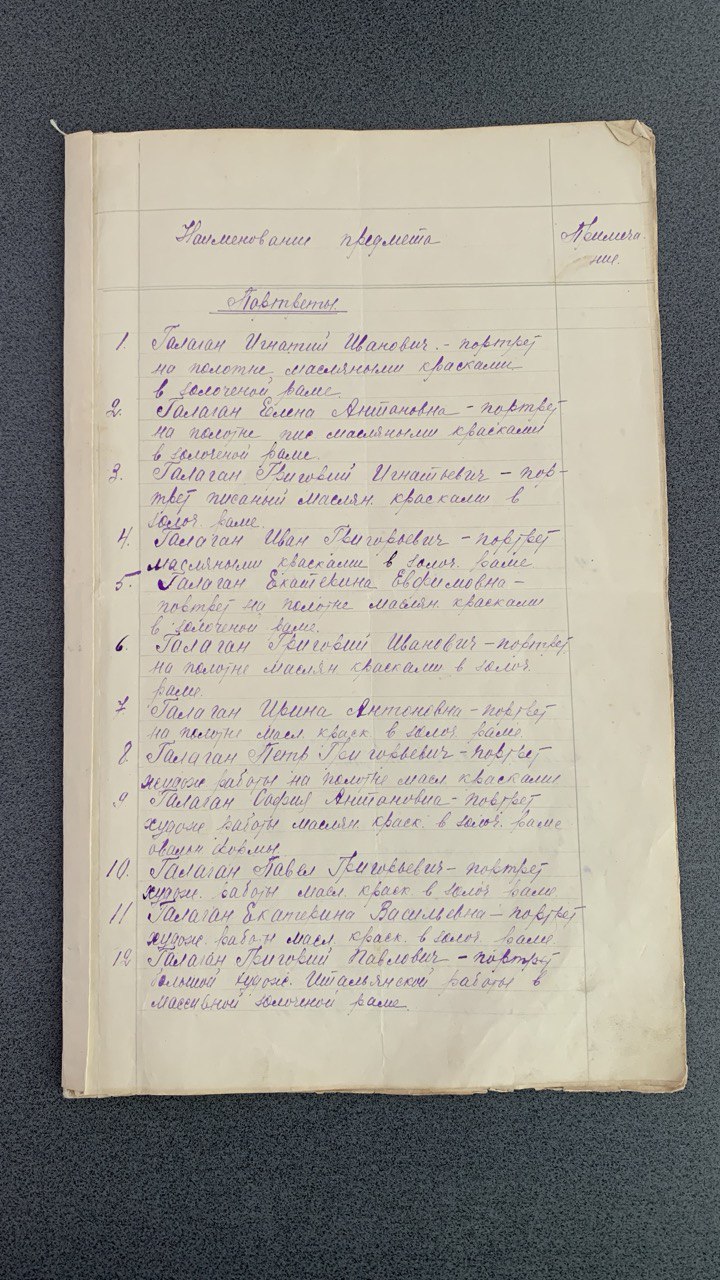 Наименование предмета
Примеча-
ние.
Портреты.
1. Галаган Игнатий Иванович. - портрет
на полотне масляными красками
в золоченой раме.
2. Галаган Елена Антоновна - портрет
на полотне пис масляными красками
в золоченой раме.
3. Галаган Григорий Игнатьевич - пор-
трет писаный маслян. красками в
золоч. раме
4. Галаган Иван Григорьевич - портрет
масляными красками в золоч. раме
5. Галаган Екатерина Евфимовна -
портрет на полотне маслян. красками
в золоченой раме.
6. Галаган Григорий Иванович - портрет
на полотне маслян красками в золоч.
раме.
7 Галаган Ирина Антоновна - портрет
на полотне масл краск в золоч раме.
8. Галаган Петр Григорьевич - портрет
худож работы на полотне масл красками
9 Галаган София Антоновна - портрет
худож работы маслян. краск. в золоч. раме
овальн формы
10. Галаган Павел Григорьевич - портрет
худож. работы масл. краск в золоч раме
11 Галаган Екатерина Васильевна - портрет
худож. работ масл. краск. в золоч. раме
12 Галаган Григорий Павлович - портрет
большой худож. Итальянской работы в
массивной золоченой раме.